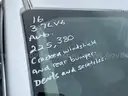 16
3.7L V6
Auto.
225,380
Cracked windshield
And rear bumper.
Dents and scratches.